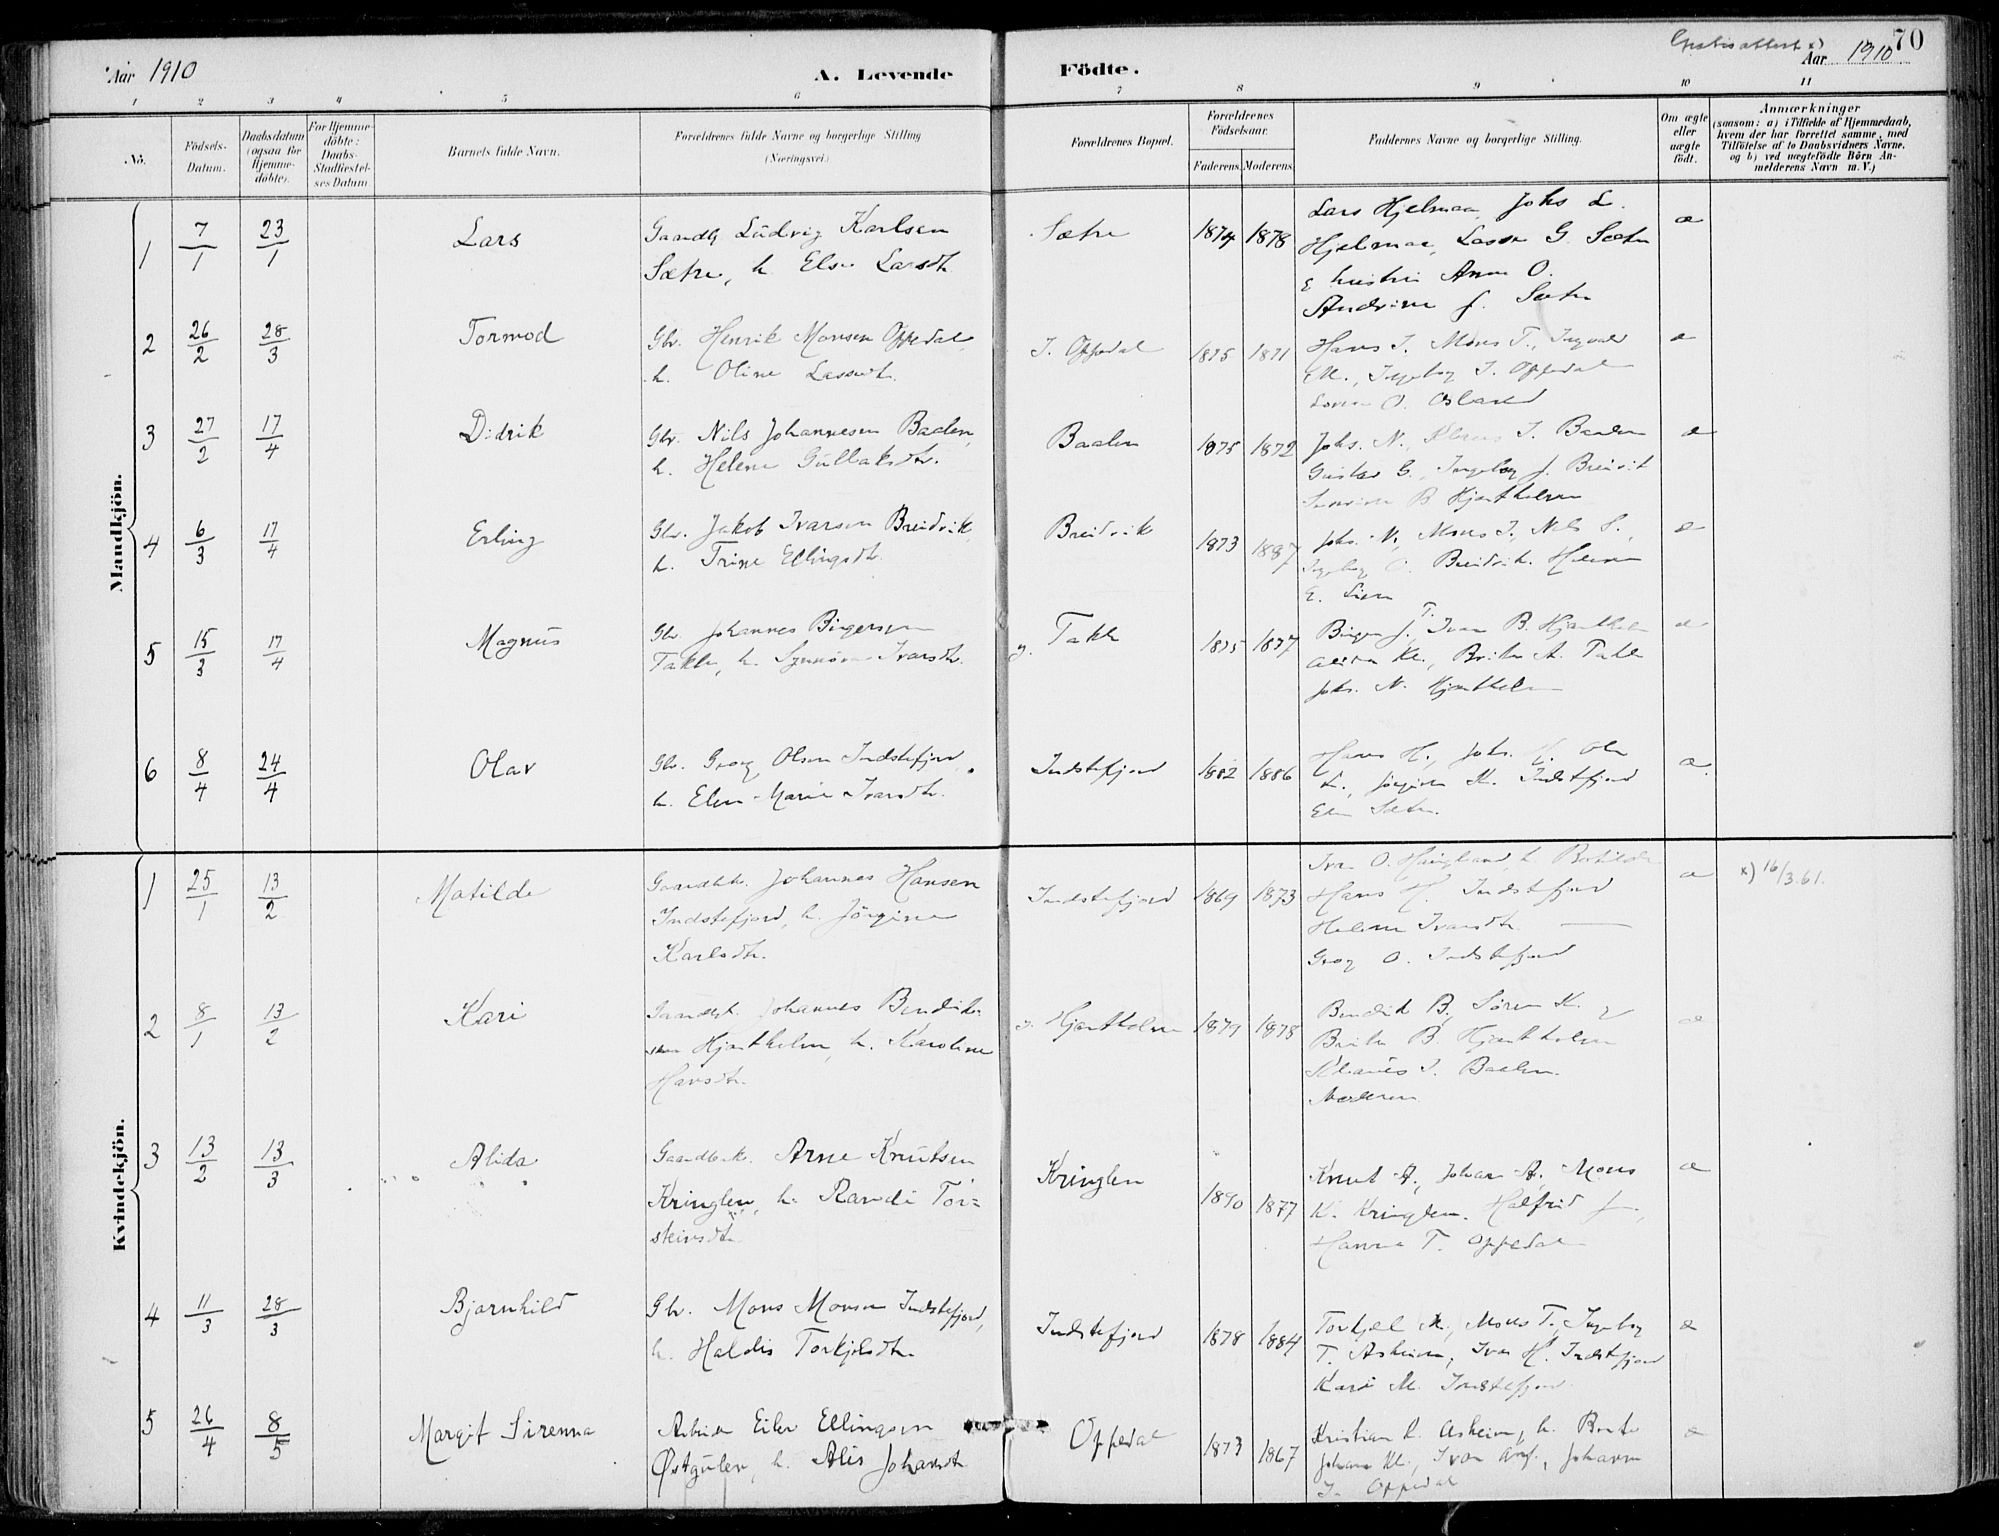 Aar 1910
A. Levende
Födte.
Gratisattest x)
70
Aar 1910
1 2 3 4 5 6 7 8 9 10 11
No.
Födsels-
Datum.
Daabsdatum
(ogsaa for
Hjemme-
döbte).
For Hjemme-
döbte:
Daabs-
Stadfæstel-
ses Datum
Barnets fulde Navn.
Forældrenes fulde Navne og borgerlige Stilling
(Næringsvei.)
Forældrenes Bopæl.
Forældrenes
Födselsaar.
Faderens. Moderens.
Faddernes Navne og borgerlige Stilling.
Om ægte
eller
uægte
födt.
Anmærkninger
(saasom: a) i Tilfælde af Hjemmedaab,
hvem der har forrettet samme, med
Tilföielse af to Daabsvidners Navne,
og b) ved uægtefödte Börn An-
melderens Navn m. V.)
Mandkjön.
1 7/1 23/1 Lars
Gaardb. Ludvig Karlsen
Sætre, h. Else Larsdtr.
Sætre 1874 1878
Lars Hjelmaa, Johs L.
Hjelmaa, Lasse G. Sætre
& hustru Anna O.
Andrine J. Sætre
æ
2 26/2 28/3 Tormod
Gbr. Henrik Monsen Oppedal,
h. Oline Lassedtr.
I. Oppedal 1875 1871
Hans I. Mons T., Ingvald
M., Ingeborg I. Oppedal
O. Osland
æ
3 27/2 17/4 Didrik
Gbr. Nils Johannesen Baalen,
h. Helene Gullaksdtr.
Baalen 1875 1872
Johs. N., Klaus I. Baalen
Gustav G., Ingeborg J. Breivik
B. Hjartholm
æ
4 6/3 17/4 Erling
Gbr. Jakob Ivarsen Breidvik,
h. Trine Ellingsdtr.
Breidvik 1873 1887
Johs. N., Mons I., Nils S.,
Ingeborg O. Breidvik. Helene
E. Lien
æ
5 15/3 17/4 Magnus
Gbr. Johannes Birgersen
Takle, h. Synnöve Ivarsdtr.
y. Takle 1875 1877
Birger J. T., Ivar B. Hjartholm
Kl., Brita A. Takle
Johs. N. Hjartholm
æ
6 8/4 24/4 Olav
Gbr. Georg Olsen Indstefjord,
h. Elen Marie Ivarsdtr.
Indstefjord 1882 1886
Hans H., Johs. H. Ole
L., Jörgine K. Indstefjord
Elen Sætre.
æ
Kvindekjön.
1 25/1 13/2 Matilde
Gaardbr. Johannes Hansen
Indstefjord, h. Jörgine
Karlsdtr.
Indstefjord 1869 1873
Ivar O. Haugland, h. Bertilde
Hans H. Indstefjord
Helene Ivarsdtr. —
Georg O. Indstefjord
æ
x) 16/3.61.
2 8/1 13/2 Kari
Gaardbr. Johannes Bendik-
sen Hjartholm, h. Karoline
Hansdtr.
y. Hjartholm 1879 1878
Bendik B., Sören K. &
Brita B. Hjartholm
Klaus I. Baalen.
Moderen
æ
3 13/2 13/3 Alida
Gaardbr. Arne Knutsen
Kringlen, h. Randi Tor-
steinsdtr.
Kringlen 1890 1877
Knut A., Johan A., Mons
K. Kringlen. Halfrid J.,
Hanna T. Oppedal
æ
4 11/3 28/3 Bjarnhild
Gbr. Mons Monsen Indstefjord,
h. Haldis Torkjelsdtr.
Indstefjord 1878 1884
Torkjel M., Mons T., Ingeborg
T. Asheim, Ivar H. Indstefjord
Kari M. Indstefjord
æ
5 26/4 8/5 Margit Sirenna
Arbeider Eiler Ellingsen
Østgulen, h. Alis Johansdtr.
Oppedal 1873 1867
Kristian L. Asheim, h. Berte
Johan Kl., Ivar Arnf., Johanna
I. Oppedal
æ